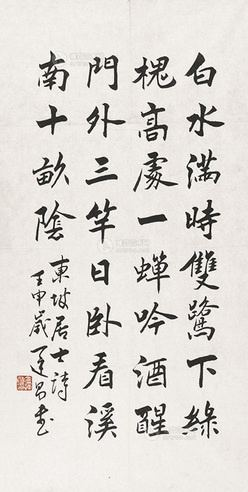 白水滿時雙鷺下綠
槐高處一蟬吟酒醒
門外三竿日卧看溪
南十畝陰
東坡居士詩
壬申歲